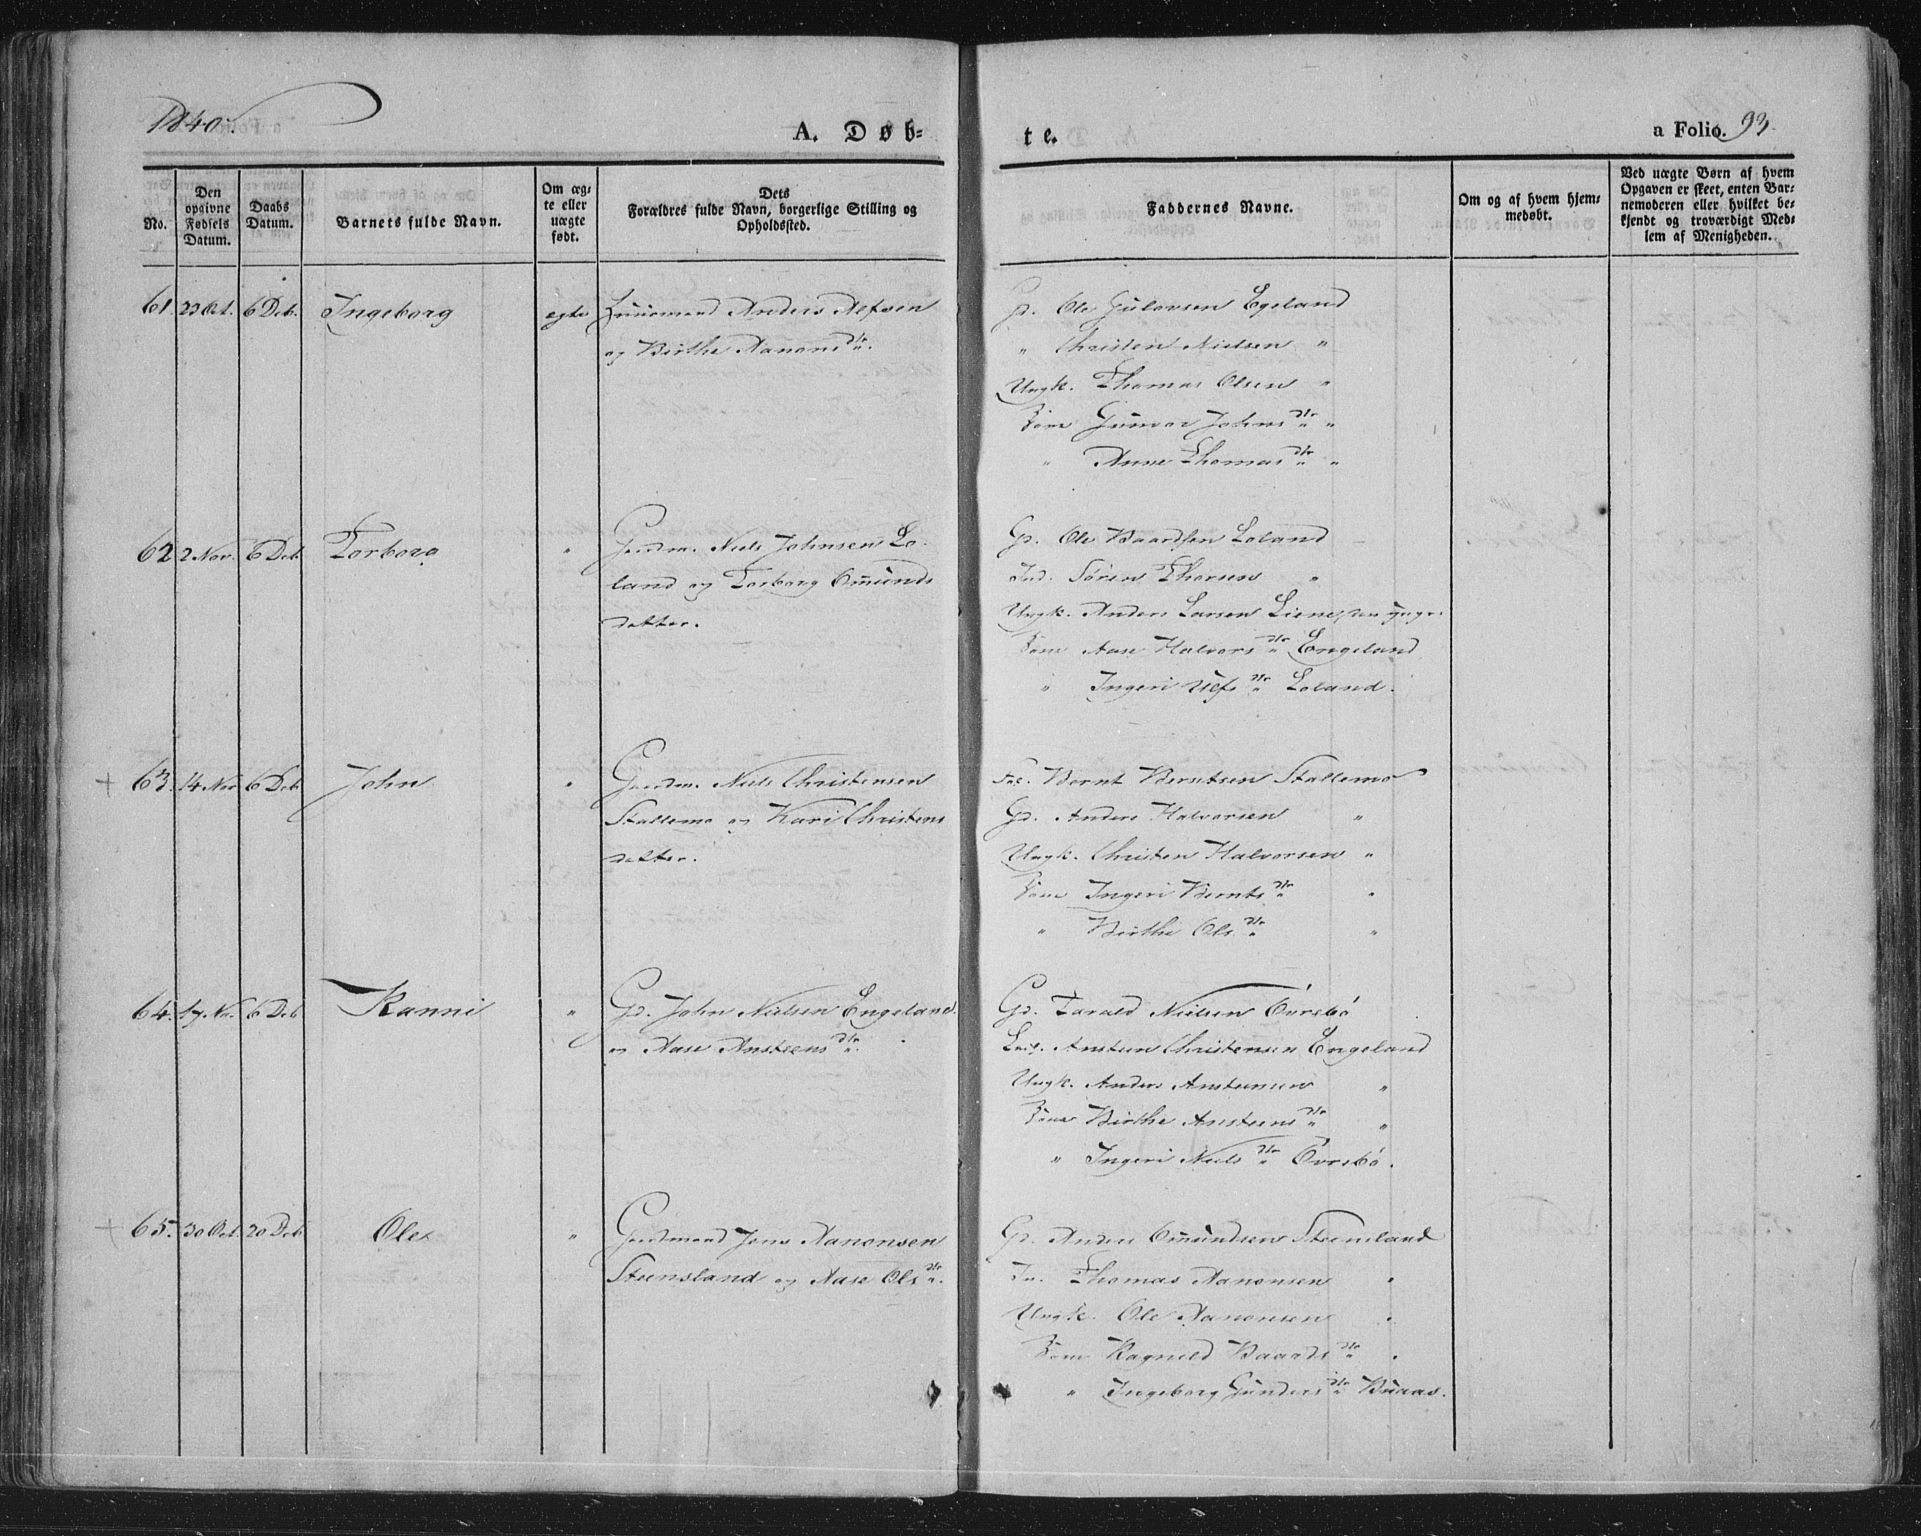 1840.
A. Døb-
te.
a Folio. 93.
No.
Den opgivne Fødsels Datum.
Daabs Datum.
Barnets fulde Navn.
Om ægte eller uægte født.
Dets Forældres fulde Navn, borgerlige Stilling og Opholdssted.
Faddernes Navne.
Om og af hvem hjemmedøbt.
Ved uægte Børn af hvem Opgaven er skeet, enten Barnemoderen eller hvilket bekjendt og troværdigt Medlem af Menigheden.
61. 23 Oct. 6 Deb. Ingeborg egte Huusmand Anders Alfsen
og Birthe Aanons dtr.
Gd. Ole Gulovsen Egeland
" Christen Nielsen "
Ungk. Thomas Olsen "
Kone Gunvor Johns dtr "
" Anne Thomas dtr "
62 2 Nov. 6 Deb Torborg " Gaardm. Niels Johnsen Lo-
land og Torborg Omunds
datter.
Gd. Ole Baardsen Loland
Ind. Sören Thorsen "
Ungk. Anders Larsen Liene,
Kone Aase Halvors dtr Engeland
" Ingeri Ulfs dtr Loland.
63. 14 Nov 6 Deb John " Gaardm. Niels Christensen
Stallemo og Kari Christens
datter.
Bernt Berntsen Stallemo
Gd. Anders Halvorsen "
Ungk. Christen Halvorsen "
Kone Ingeri Bernts dtr "
" Birthe Ols dtr "
64. 17 Nov. 6 Deb Kanni " Gd. John Nielsen Engeland
og Aase Ansteens dtr.
Gd. Tarald Nielsen Övrebö
Ansteen Christensen Engeland
Ungk. Anders Ansteensen "
Kone Birthe Ansteens dtr "
" Ingeri Niels dtr Övrebö.
65. 30 Oct. 20 Deb Ole " Gaardmand Jens Aanonsen
Steensland og Aase Ols dtr.
Gd. Anders Omundsen Steensland
In. Thomas Aanonsen "
Ungk. Ole Aanonsen "
Kone Ragnild Baards dtr "
" Ingeborg Gunders dtr Buaas.